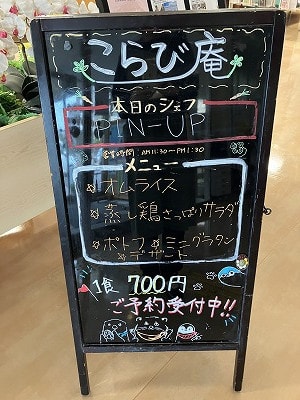 こらび庵
本日のシェフ
PIN-UP
営業時間:AM11:30〜PM1:30
メニュー
オムライス
蒸し鶏さっぱりサラダ
ポトフ ミニグラタン
デザート
1食 700円
ご予約受付中!!